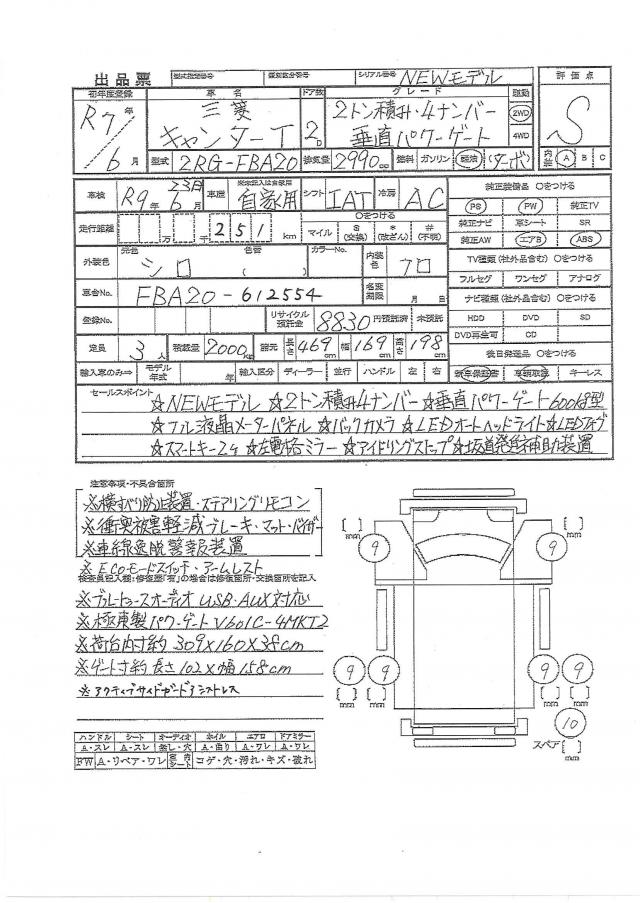 出品票 型式指定番号 類別区分番号 シリアル番号 NEWモデル
初年度登録 車名 ドア数 グレード 駆動 評価点
R7年 三菱 2トン積み・4ナンバー 2WD S
キャンターT 2D 垂直パワーゲート 4WD
6月 型式 2RG-FBA20 排気量 2990cc 燃料 ガソリン 軽油 (ターボ) 内装 A B C
車検 R9年 23日 6月 車歴 自家用 シフト IAT 冷房 AC 純正装備品 ○をつける
PS PW 純正TV
走行距離 万 千 251 km ○をつける マイル $ (交換) * (改ざん) # (不明) 純正ナビ 革シート SR
純正AW エアB ABS
外装色 元色 シロ 色替 ( ) カラーNo. 内装色 クロ TV種類 (社外品含む) ○をつける
フルセグ ワンセグ アナログ
車台No. FBA20-612554 名変期限 月 日 ナビ種類 (社外品含む) ○をつける
登録No. リサイクル預託金 8830円預託済 未預託 HDD DVD SD
DVD再生可 CD
定員 3人 積載量 2000kg 諸元 長さ 469cm 幅 169cm 高さ 198cm 後日発送品 ○をつける
輸入車のみ⇒ モデル年式 年 輸入区分 ディーラー 並行 ハンドル 左 右 新車保証書 車輌取説 キーレス
セールスポイント
☆NEWモデル ☆2トン積み4ナンバー ☆垂直パワーゲート600kg型
☆フル液晶メーターパネル ☆バックカメラ ☆LEDオートヘッドライト ☆LEDフォグ
☆スマートキー2ケ ☆左電格ミラー ☆アイドリングストップ ☆坂道発進補助装置
注意事項・不具合箇所
※横すべり防止装置・ステアリングリモコン
※衝突被害軽減ブレーキ・マット・バイザー
※車線逸脱警報装置
※ECOモードスイッチ・アームレスト
検査員記入欄:修復歴「有」の場合は修復箇所・交換箇所を記入
※ブルートゥースオーディオ USB・AUX対応
※極東製パワーゲート V601C-4MKT2
※荷台内寸約 309×160×38cm
※ゲート寸約 長さ102×幅158cm
※アクティブサイドガードアシストレス
[ ] mm 9 9 [ ] mm
9 9 9 9
[ ] mm [ ] mm [ ] mm [ ] mm
10
スペア [ ] mm
ハンドル シート オーディオ ホイル エアロ ドアミラー
A・スレ A・スレ 無し・穴 A・曲り A・ワレ A・ワレ
FW A・リペア・ワレ 室内シート コゲ・穴・汚れ・キズ・破れ